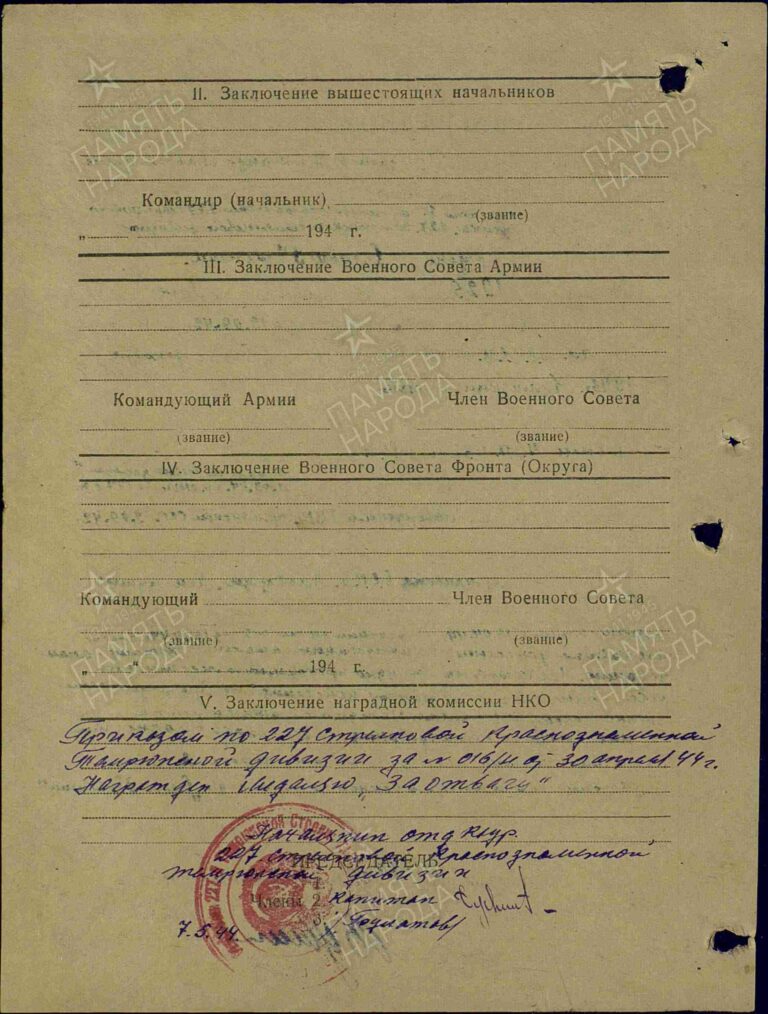 II. Заключение вышестоящих начальников
Командир (начальник)
(звание)
„ “ 194 г.
III. Заключение Военного Совета Армии
Командующий Армии Член Военного Совета
(звание) (звание)
IV. Заключение Военного Совета Фронта (Округа)
Командующий Член Военного Совета
(звание) (звание)
„ “ 194 г.
V. Заключение наградной комиссии НКО
Приказом по 227 стрелковой Краснознаменной
Темрюкской дивизии за № 016/н от 30 апреля 44 г.
Награжден Медалью „За отвагу“
Начальник отд кадр.
227 стрелковой Краснознаменной
ПРЕДСЕДАТЕЛЬ
Темрюкской дивизии
1.
Члены 2. Капитан
3.
7.5.44.
ПАМЯТЬ НАРОДА
ПАМЯТЬ НАРОДА
ПАМЯТЬ НАРОДА
ПАМЯТЬ НАРОДА
ПАМЯТЬ НАРОДА
ПАМЯТЬ НАРОДА